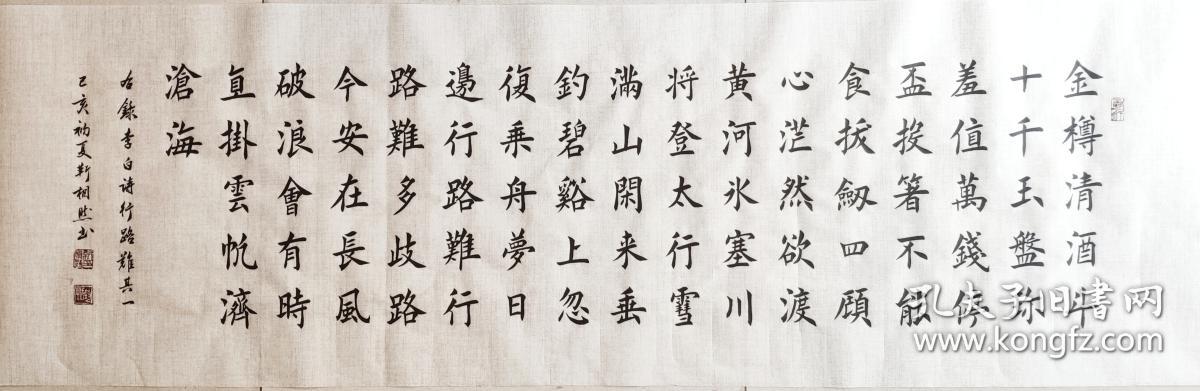 金樽清酒斗
十千玉盤珎
羞值萬錢停
盃投箸不能
食拔劔四顧
心茫然欲渡
黄河氷塞川
将登太行雪
滿山閑来垂
釣碧谿上忽
復乘舟夢日
邊行路難行
路難多歧路
今安在長風
破浪會有時
直掛雲帆濟
滄海
右錄李白诗行路難其一
己亥初夏靳相然书
孔夫子旧书网
www.kongfz.com